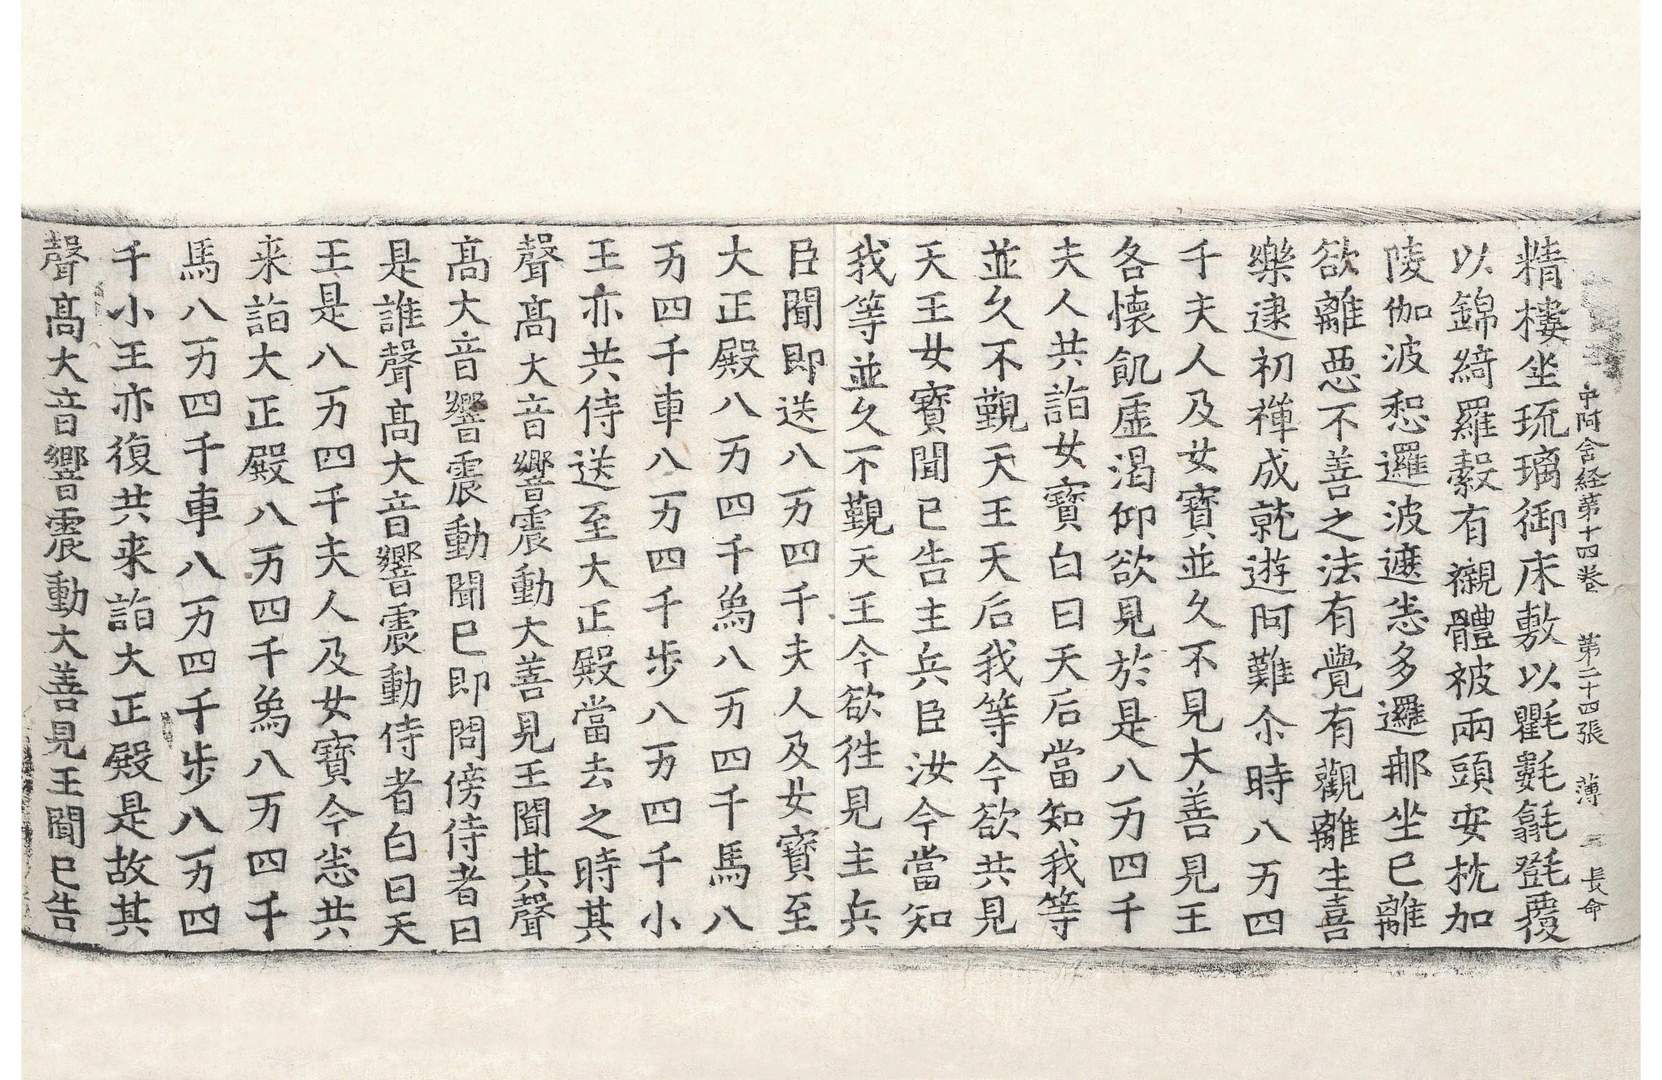 中阿含経第十四巻 第二十四張 薄 長命
精樓坐琉璃御床敷以氍㲣毾㲪覆
以錦綺羅縠有襯體被兩頭安枕加
陵伽波惒邏波遮悉多邏那坐已離
欲離惡不善之法有覺有觀離生喜
樂逮初禪成就遊阿難尒時八万四
千夫人及女寶並久不見大善見王
各懷飢虛渴仰欲見於是八万四千
夫人共詣女寶白曰天后當知我等
並久不覲天王天后我等今欲共見
天王女寶聞已告主兵臣汝今當知
我等並久不覲天王今欲徃見主兵
臣聞即送八万四千夫人及女寶至
大正殿八万四千𤉢八万四千馬八
万四千車八万四千步八万四千小
王亦共侍送至大正殿當去之時其
聲髙大音響震動大善見王聞其聲
髙大音響震動聞已即問傍侍者曰
是誰聲髙大音響震動侍者白曰天
王是八万四千夫人及女寶今悉共
来詣大正殿八万四千𤉢八万四千
馬八万四千車八万四千步八万四
千小王亦復共来詣大正殿是故其
聲髙大音響震動大善見王聞已告